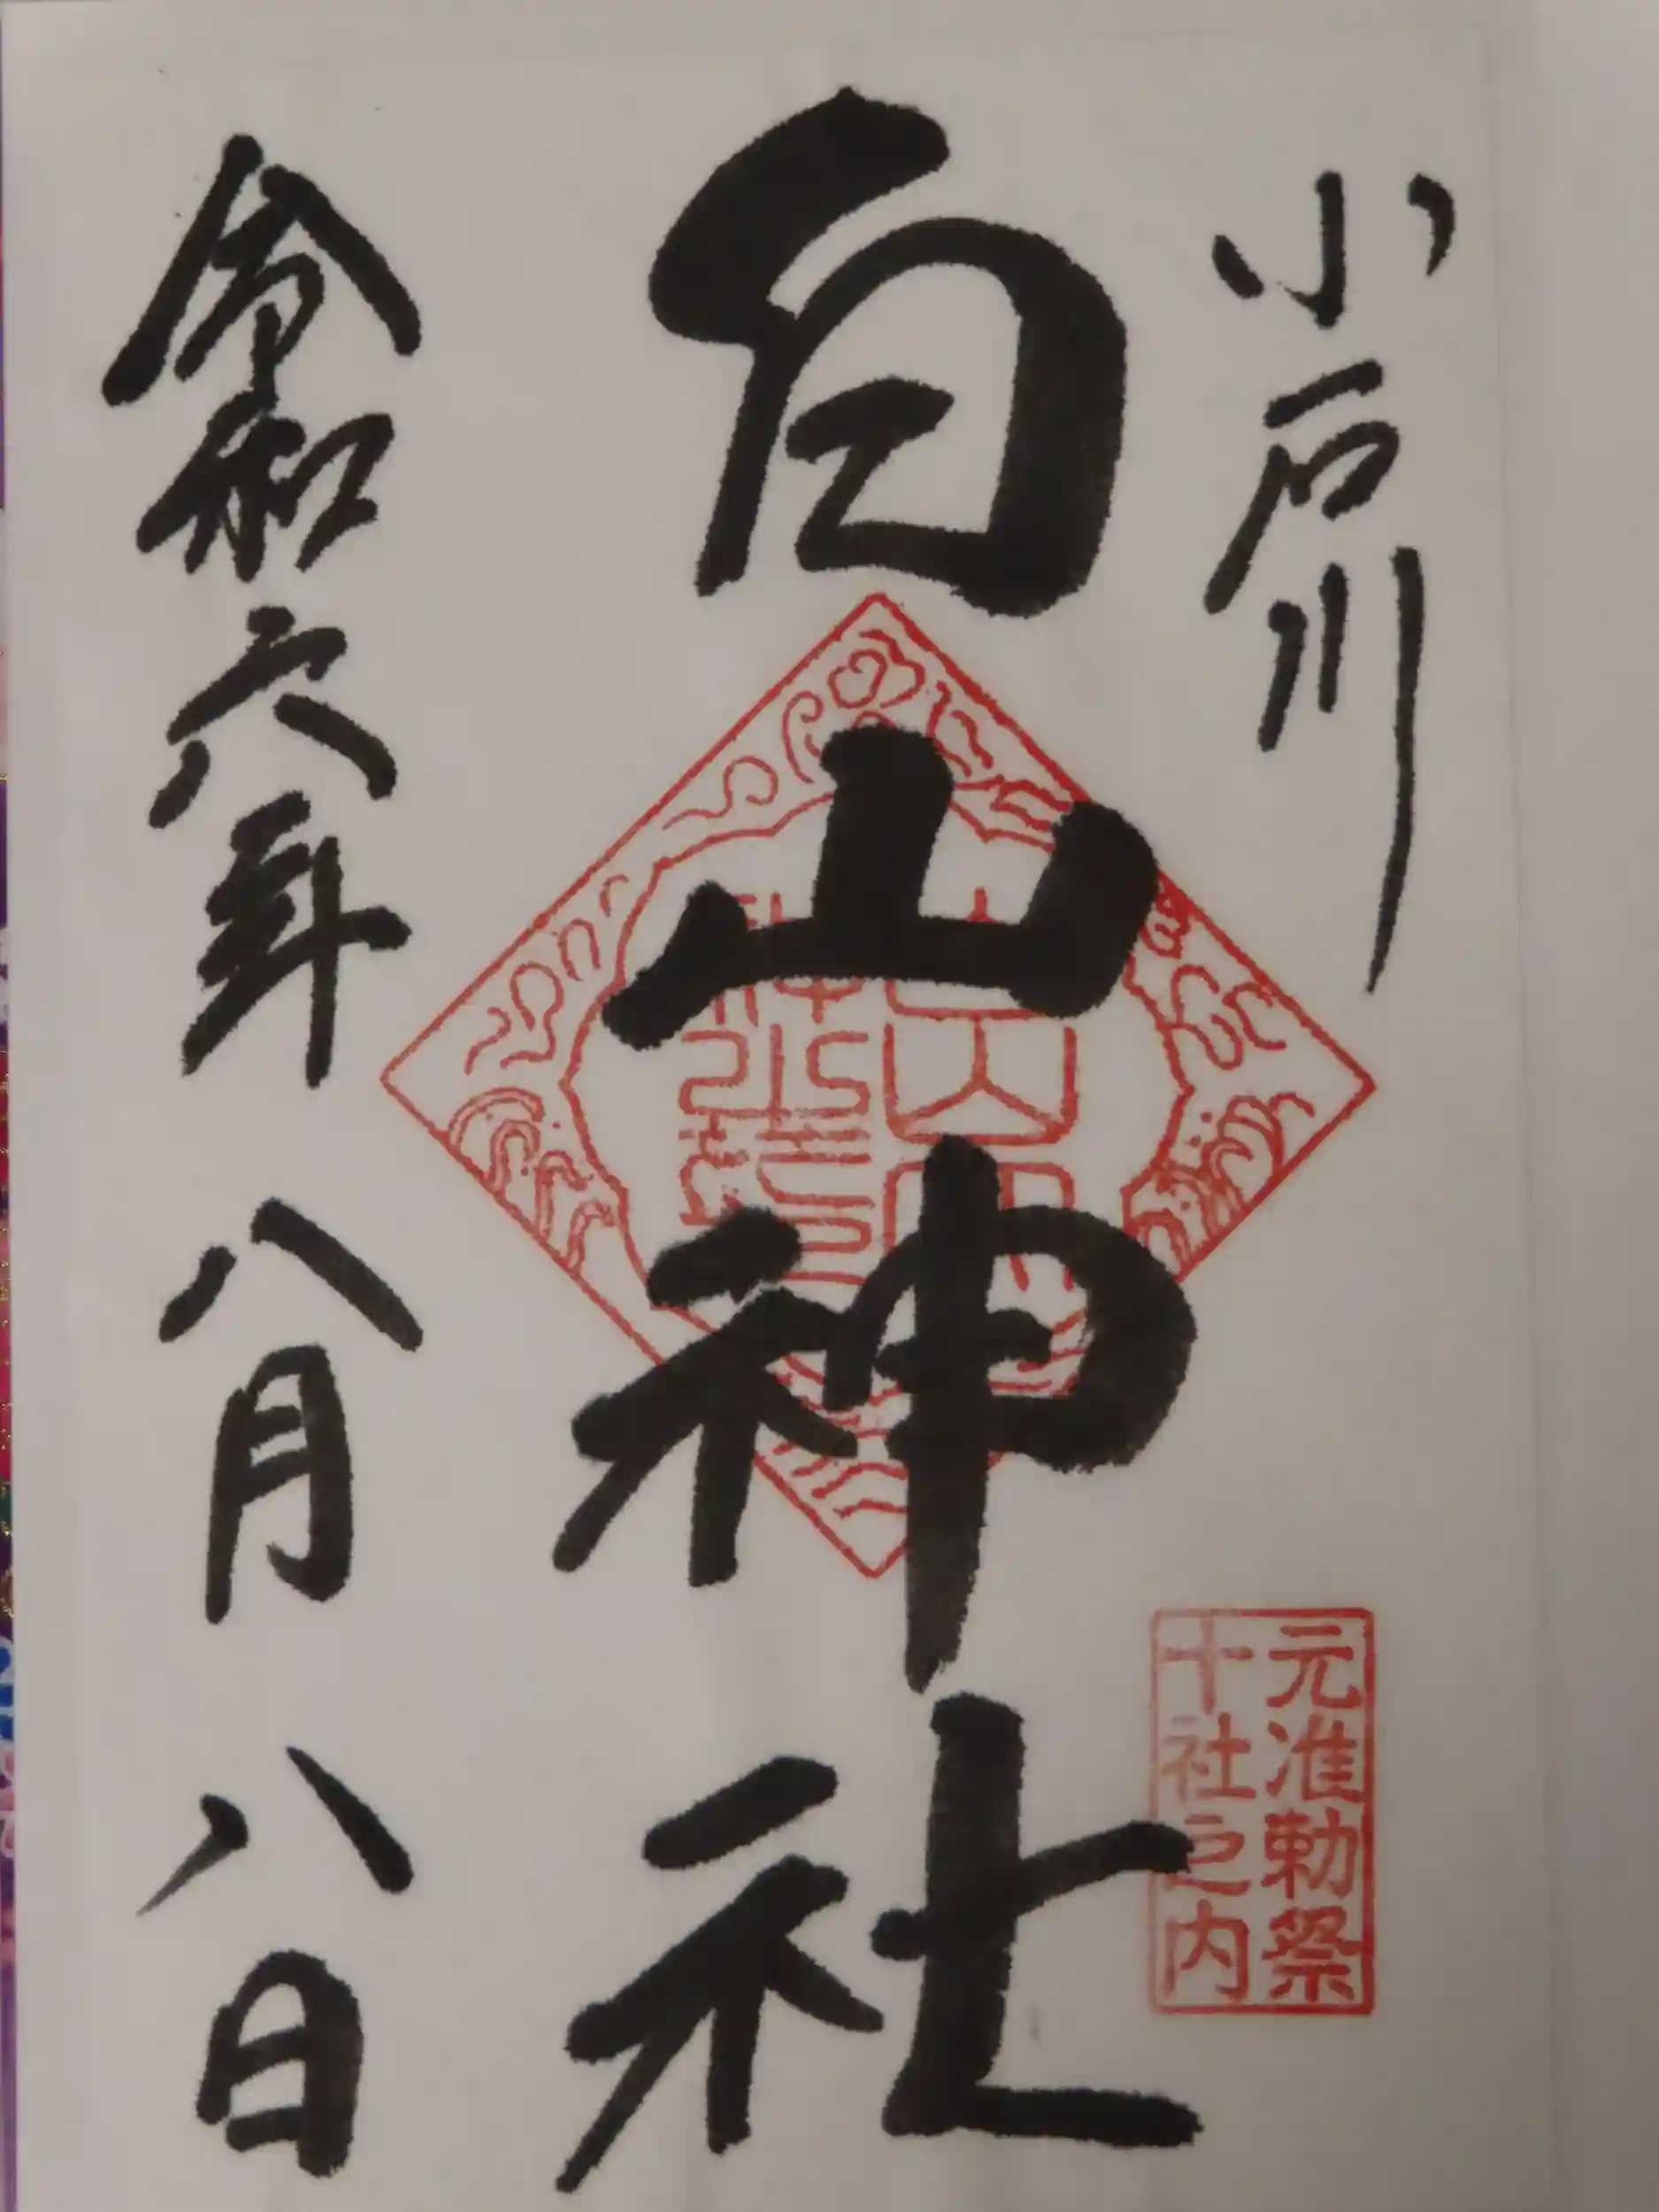 小石川
白山神社
令和六年 八月 八日
元准勅祭
十社之内